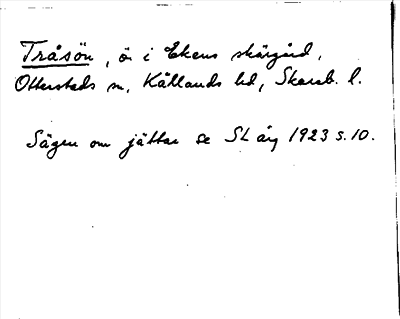 Tråsön, ö i Ekens skärgård,
Otterstads sn, Kållands hd, Skarab. l.
Sägen om jättar se SL årg 1923 s. 10.